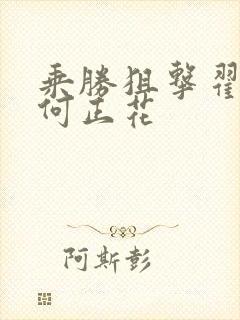 乘勝狙擊翟
何正花
阿斯彭